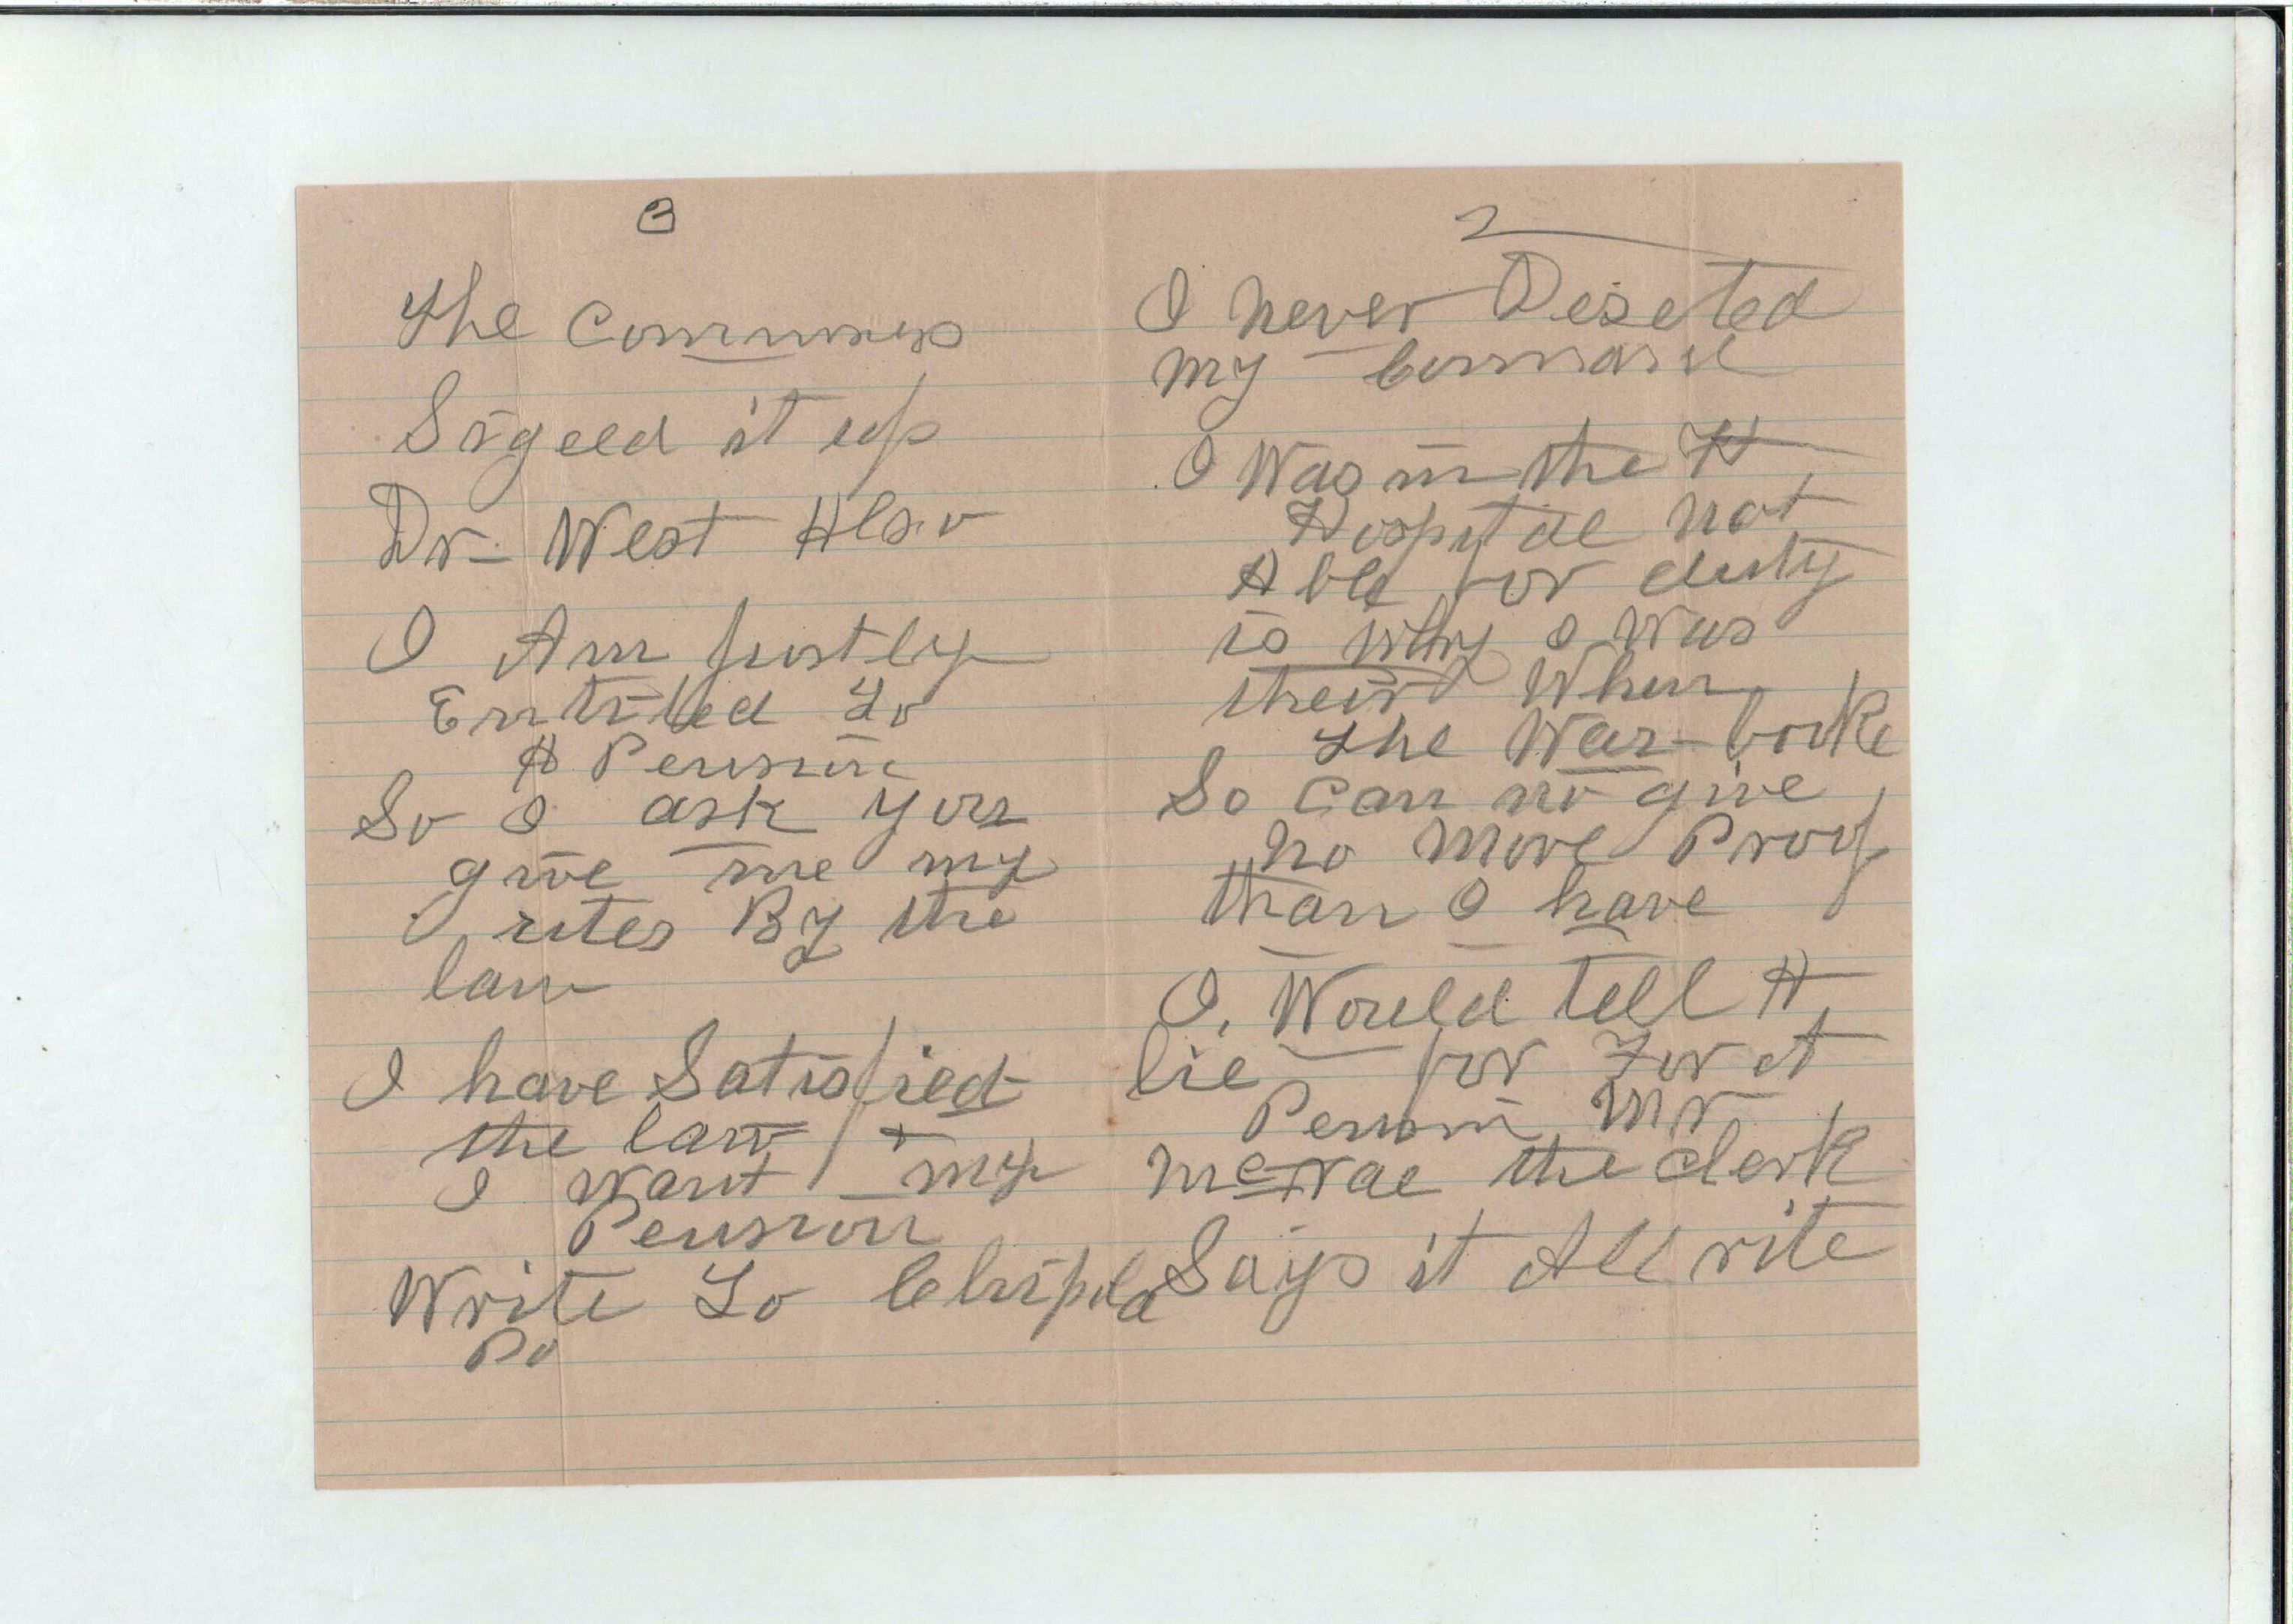 2
I never Deseted
my Command
I Was in the A
Hospital not
Able for duty
is why I Was
their When
the War broke
So Can no give
no more Proof
than I have
I. Would tell A
lie for For A
Pension Mr
McRae the clerk
Says it All rite
3
The
Signed it up
Dr- West Also
I Am justly
Entitled To
A Pension
So I ask you
give me my
rites By the
law
I have Satisfied
the law +
I want my
Pension
Write To Chipola
Po